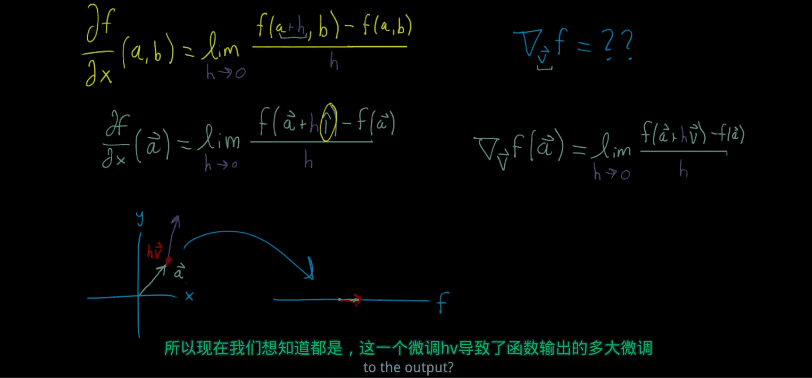 ∂f/∂x (a,b) = lim h→0 (f(a+h, b) − f(a,b))/h
∇_v⃗ f = ??
∂f/∂x (a⃗) = lim h→0 (f(a⃗+hî) − f(a⃗))/h
∇_v⃗ f(a⃗) = lim h→0 (f(a⃗+hv⃗) − f(a⃗))/h
y
hv⃗
a⃗
x
f
所以现在我们想知道都是，这一个微调hv导致了函数输出的多大微调
to the output?